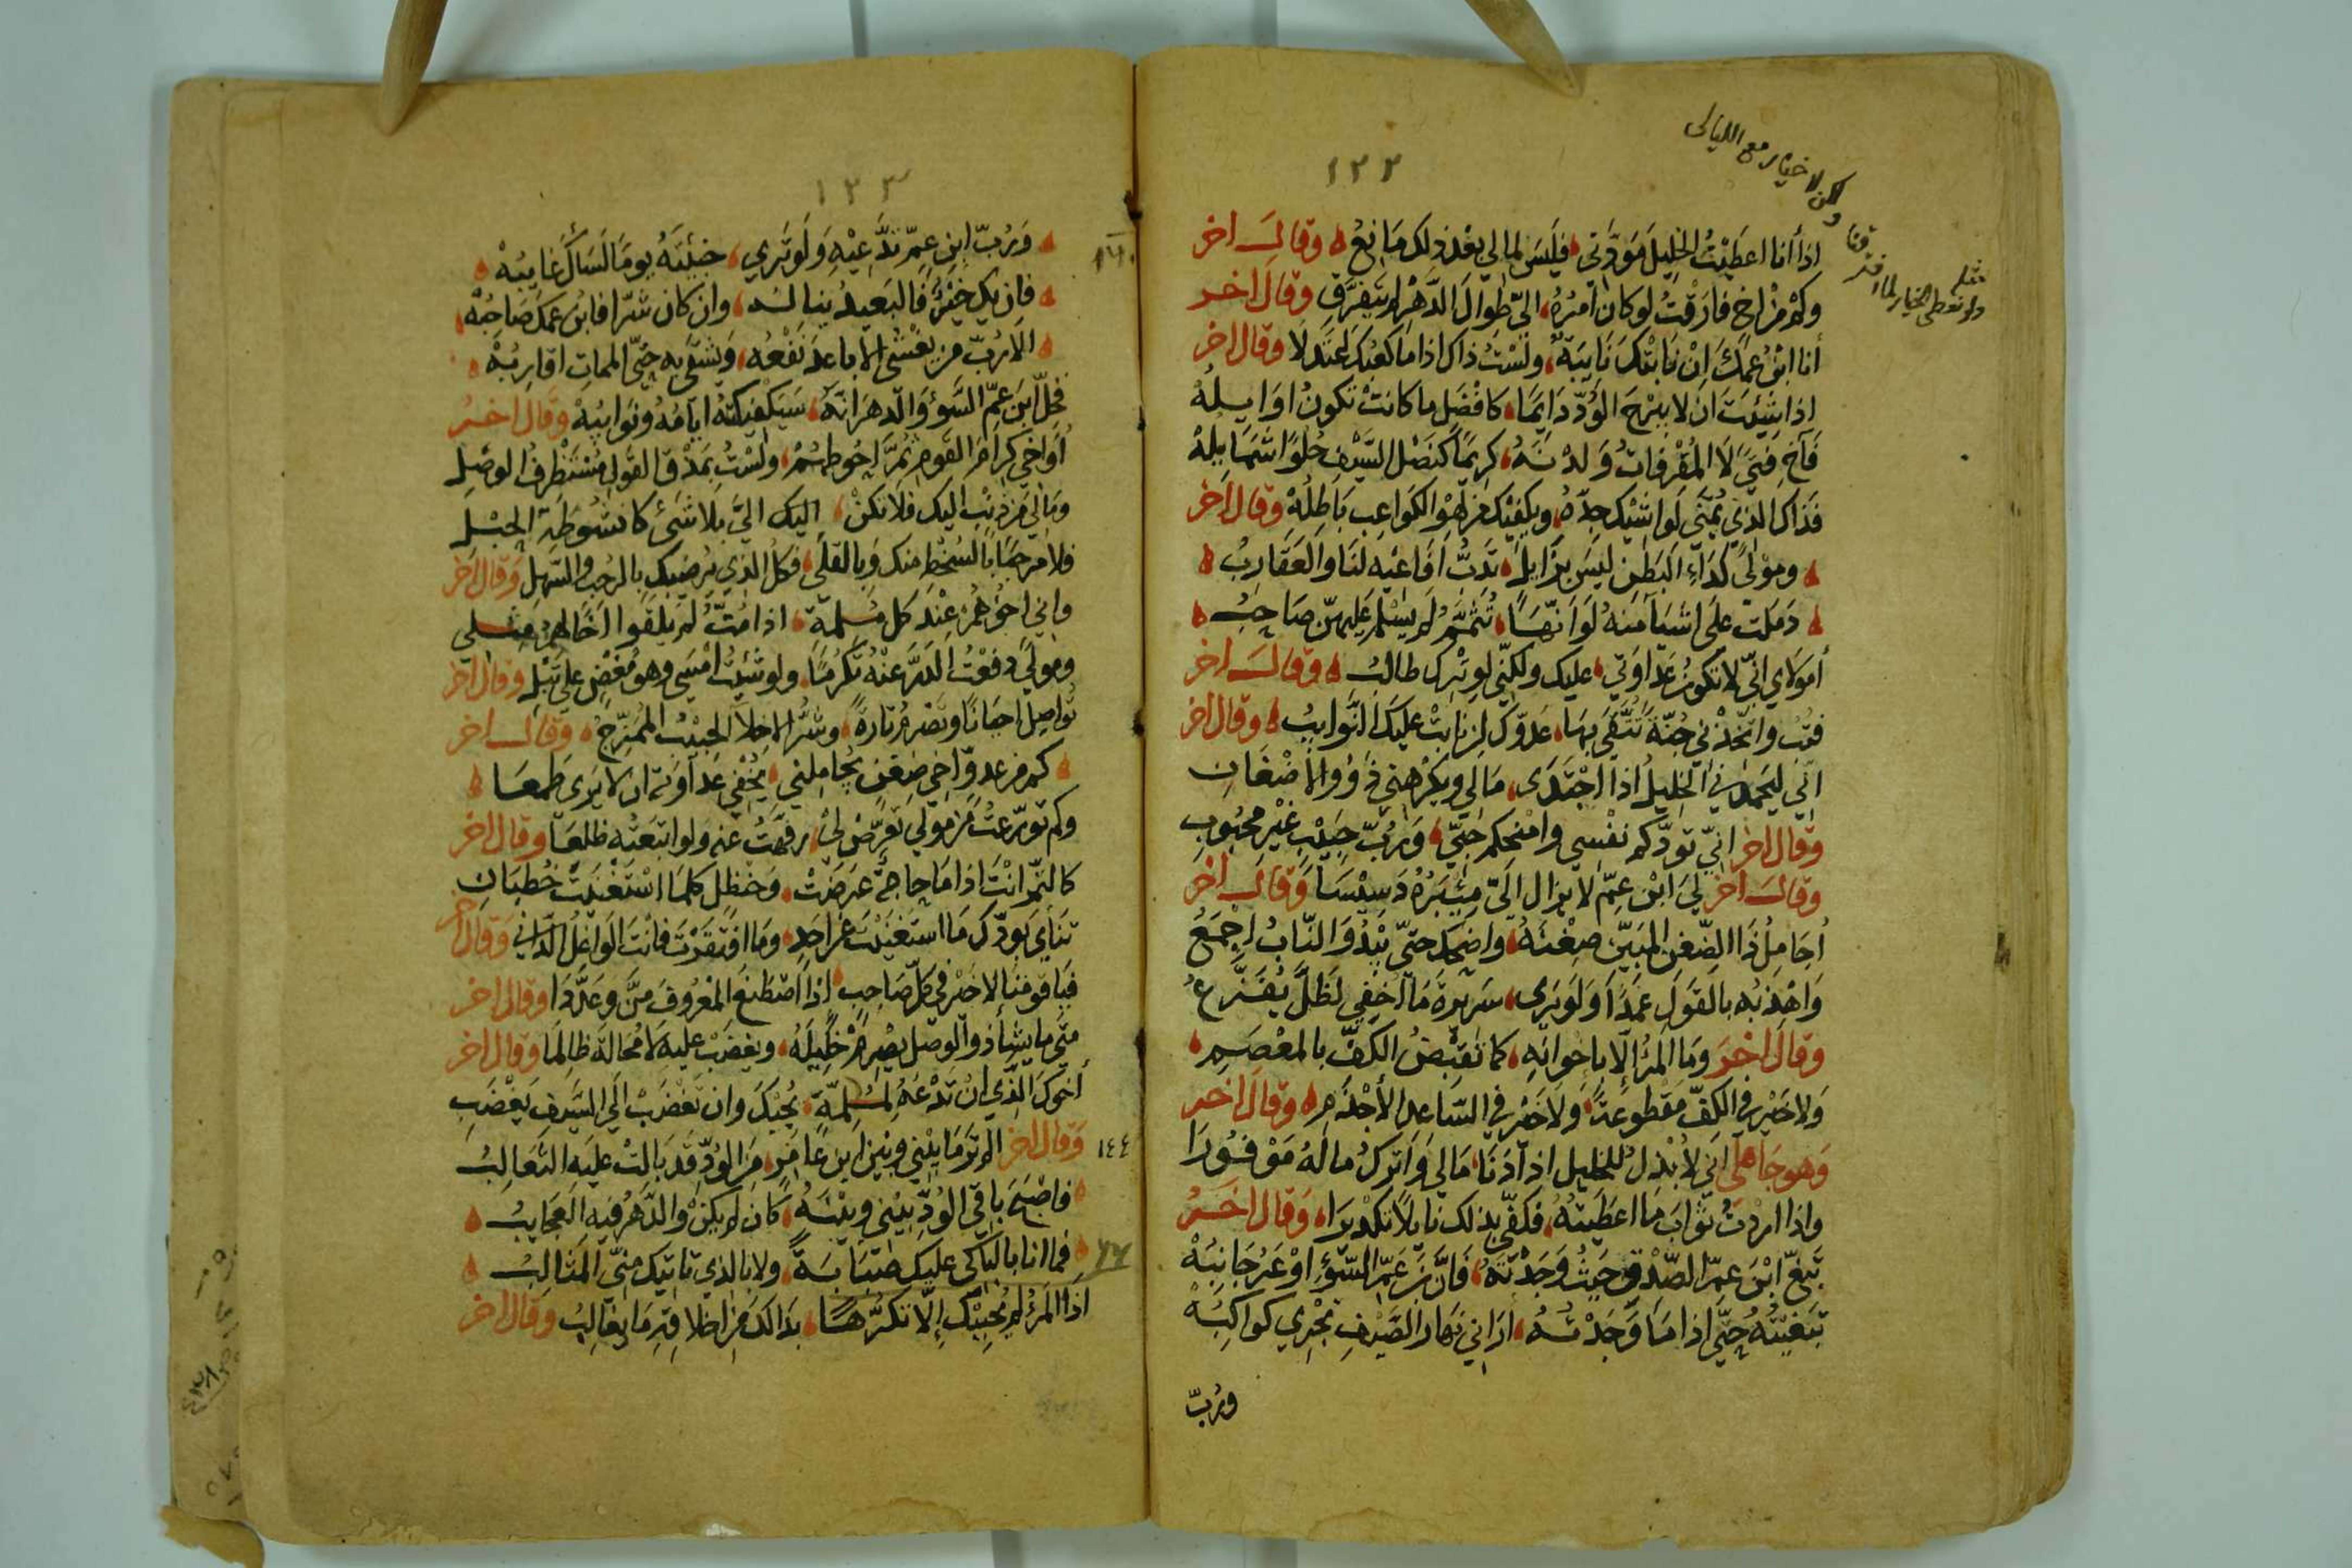 ١٢٢
مثله
ولو نعطى الخيار لما افترقنا
ولكن لا خيار مع الليالى
اذا أنا اعطيْتُ الخليلَ مَودَّتي فليسَ لمالي بعْدَ ذلك مَانِعُ وقالَ اخر
وكم مِنْ اخٍ فارَقْتُ لو كان امرُهُ اليّ طوالَ الدَّهْرِ لم يَتَفرَّقِ وقال اخر
أنا ابْنُ عمِّكَ اِنْ نَابتْكَ نَايبَةٌ ولَسْتُ ذاك اذا ما كعبُكَ اعتدلَا وقال اخر
اذا شيئتَ ان لا يبرَحَ الوُدّ دَايمًا كافْضَل ما كانتْ تكونُ اوَايلهُ
فَآخِ فتىً لا المُقْرِفاتُ وَلدْنَهُ كريمًا كنَصْل السَّيْف حُلوًا شمَايلهْ
فَذَاك الذي يُمنَّى لواشيْك جدّهُ ويكفيْك من لهْو الكَواعِبِ بَاطِلُهْ وقال اخر
ومَوْلىً كدَاءِ البَطنِ ليسَ بزَايلٍ تَدبُّ افَاعيْهِ لنَا والعَقَاربُ
دَملت على اشيآ منهُ لوَ انّهَا تُتَمَّمُ لم يسْلم عليهنّ صَاحِبُ
أموَلاي انّي لا تكون عَدَاوَتي عليك ولكنّي لوتركَ طالبُ وقالَ اخر
فتُب واتّخذْني جُنّةً تتَّقي بهَا عَدوّك ان نابتْ عليكَ النَّوايبُ وقال اخر
انّي ليَحمدني الخليلُ اذا اجْتَدَى مَالي ويكرهني ذَوُو الاضْغَانِ
وقال اخر انّي تودّكم نفْسي وامْنحكم حُبّي وَرُبّ حَبيْبٍ غيْر محبُوبِ
وقالَ آخر ليَ ابْن عمّ لا يزال اليّ مئبرُهُ دَسيْسَا وقالَ آخر
اُجَامِلُ ذَا الضّغن المبَيّن ضغْنَهُ واضحَكُ حتّى يَبْدُوَ النّابُ اجْمَعُ
وَاهْذبُه بالقَولِ عَمْدًا وَلَو يَرى سَريرَةَ مَا اُخفي لَظَلّ يُفَزَّعُ
وقال اخر وَمَا المَرْءُ اِلّا بِاخوانهِ كما تقبْضُ الكفّ بالمعْصَمِ
وَلا خيْر في الكفّ مَقطوعَةً وَلا خيْر في السّاعد الاَجْذَمِ وقال اخر
وهو جَاهلي اني لاُبْذلُ للخليل اذا دَنَا مَالي وَاَترك مالهُ مَوْفُورَا
واذا اردْتُ ثوابَ مَا اعطَيتهُ فكفَى بذلك نايلًا تكدْيرَا وَقال اخرُ
تبَغّ ابْنَ عمّ الصّدْق حَيثُ وَجَدْتَهُ فَانّ ابنَ عَمّ السّوْءِ اوْعرُ جَانبُهْ
تبَغيْتُهُ حتّى اذا مَا وَجَدْتُهُ ارَاني نهَارَ الصَّيْفِ تجري كواكبُهْ
ورُبّ
١٢٣
وَرُبّ ابن عمّ تدَّعيْهِ وَلو تَرى خبئتَهُ يومًا لسَأكَ غَايبُهْ
فان يك خيْرًا فالبَعيدُ يناله وان كان شرّا فابنُ عمكَ صَاحبُهْ
الا رُبّ من يغْشى الاباعدَ نفْعُه وَيشقَى به حتّى الممات اقارِبُهْ
فخلّ ابنَ عمّ السَّوْءِ وَالدّهرَ انّهُ سيكفيكهُ ايامُهُ ونوَايبُهْ وَقال اخرُ
أواخي كرام القَومِ ثمّ احُوطهُمْ ولسْتُ بمَذْق القَول مُسْتَطْرف الوصْلِ
وَمَالي من ذنْبٍ اليك فلا تكنْ اليك اليَّ بلا شَئ كانشُوطَةِ الحَبْلِ
فلا مرحبًا بالسُخْط منك وَبالقلَى فكل الذي يُرْضيكِ بالرحْبِ والسّهلِ وقال اخر
واني اخُوهُمْ عِنْدَ كل مُلمةٍ اذا مُتُّ لم يلقَوا اَخًا لهُمُ مثلي
ومولىً دفعْتُ الدَرَّ عنْهُ تكَرُّمًا ولو شئتُ امْسَى وهو مُغْضٍ على تَبْلِ وقال اخر
تُواصِل احيَانًا وتصْرمُ تارةً وشرّ الاخلّا الحبيْبُ المُمَزّجُ وقالَ اخر
كم من عدوّ اخي ضغْن يُجاملني يُخفي عَداوَته ان لا يَرى طمعَا
وكم تورّعتُ من مولى تعرَّضَ لي رفّهتُ عنه ولو اتبعتُه ظلعَا وقال اخر
كالتّمر انْتَ اذا مَا حَاجةٌ عَرَضَتْ وَحَنظل كلّمَا اسْتَغْنيْتَ خُطبَانِ
تنآى بودّك مَا استَغنيْتَ عن احَدٍ وَمَا افتَقَرْتَ فانْتَ الوَاغلُ الدَّاني وَقال اخر
فيَا قومَنا لا خَيْر في كل صَاحبٍ اذا اصْطَنعَ المعْرُوفَ منَّ وَعدَّدَا وقال اخر
متى ما يشأ ذو الوصْل يصْرمْ خليلَهُ ويغضَبْ عليه لا مُحَالةَ ظَالمَا وقال اخر
أخوكَ الذي انْ تَدْعُهُ لمُلمّةٍ يُجبْكَ وان تغْضَبْ الى السَّيف يَغْضَبِ
١٤٤
وَقال اخر الم ترَ مَا بيْني وبيْن ابن عَامِرٍ من الوُدّ قد بَالتْ عليه الثّعَالبُ
فاصْبَحَ باقي الوُدّ بيْني وبيْنَهُ كان لم يكنْ والدّهرُ فيه العجَايبُ
فما انا بالباكي عليك صَبَابَةً ولا بالذي تاتيك منّي المَثَالبُ
اذا المرْءُ لم يُحبِبْك إلّا تكَرُّهًا بذا لكَ من اخلاقه مَا يغَالبُ وَقال اخر